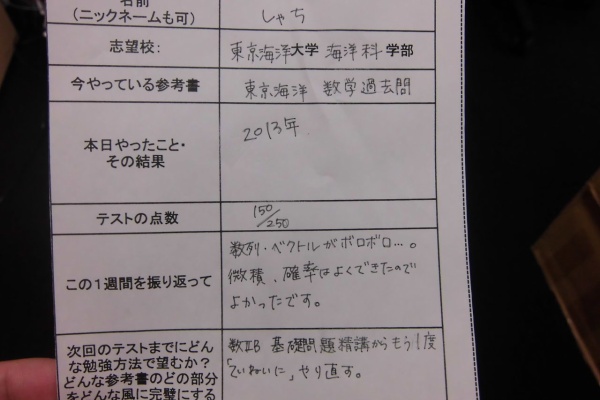 名前
(ニックネームも可)
しゃち
志望校:
東京海洋大学 海洋科学部
今やっている参考書
東京海洋 数学過去問
本日やったこと・
その結果
2013年
テストの点数
150/250
この1週間を振り返って
数列・ベクトルがボロボロ…。
微積、確率はよくできたので
よかったです。
次回のテストまでにどん
な勉強方法で望むか?
どんな参考書のどの部分
をどんな風に完璧にする
数ⅡB 基礎問題精講からもう1度
「ていねいに」やり直す。